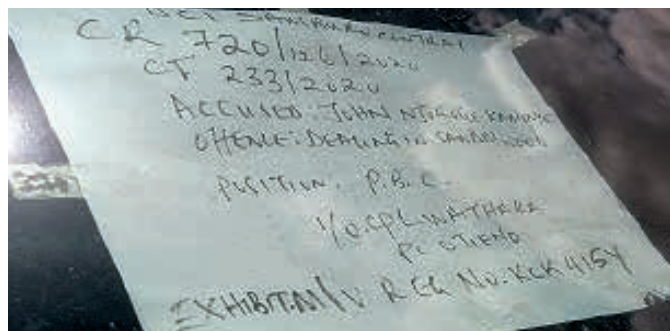 CR 720/126/2020
CF 233/2020
ACCUSED: JOHN NJOROGE KAMAU
OFFENCE: DEALING IN SANDALWOOD
POSITION: P.B.C.
I/O CPL WATHEKA
PC OTIENO
EXHIBIT. M/V REG NO. KCK 415Y